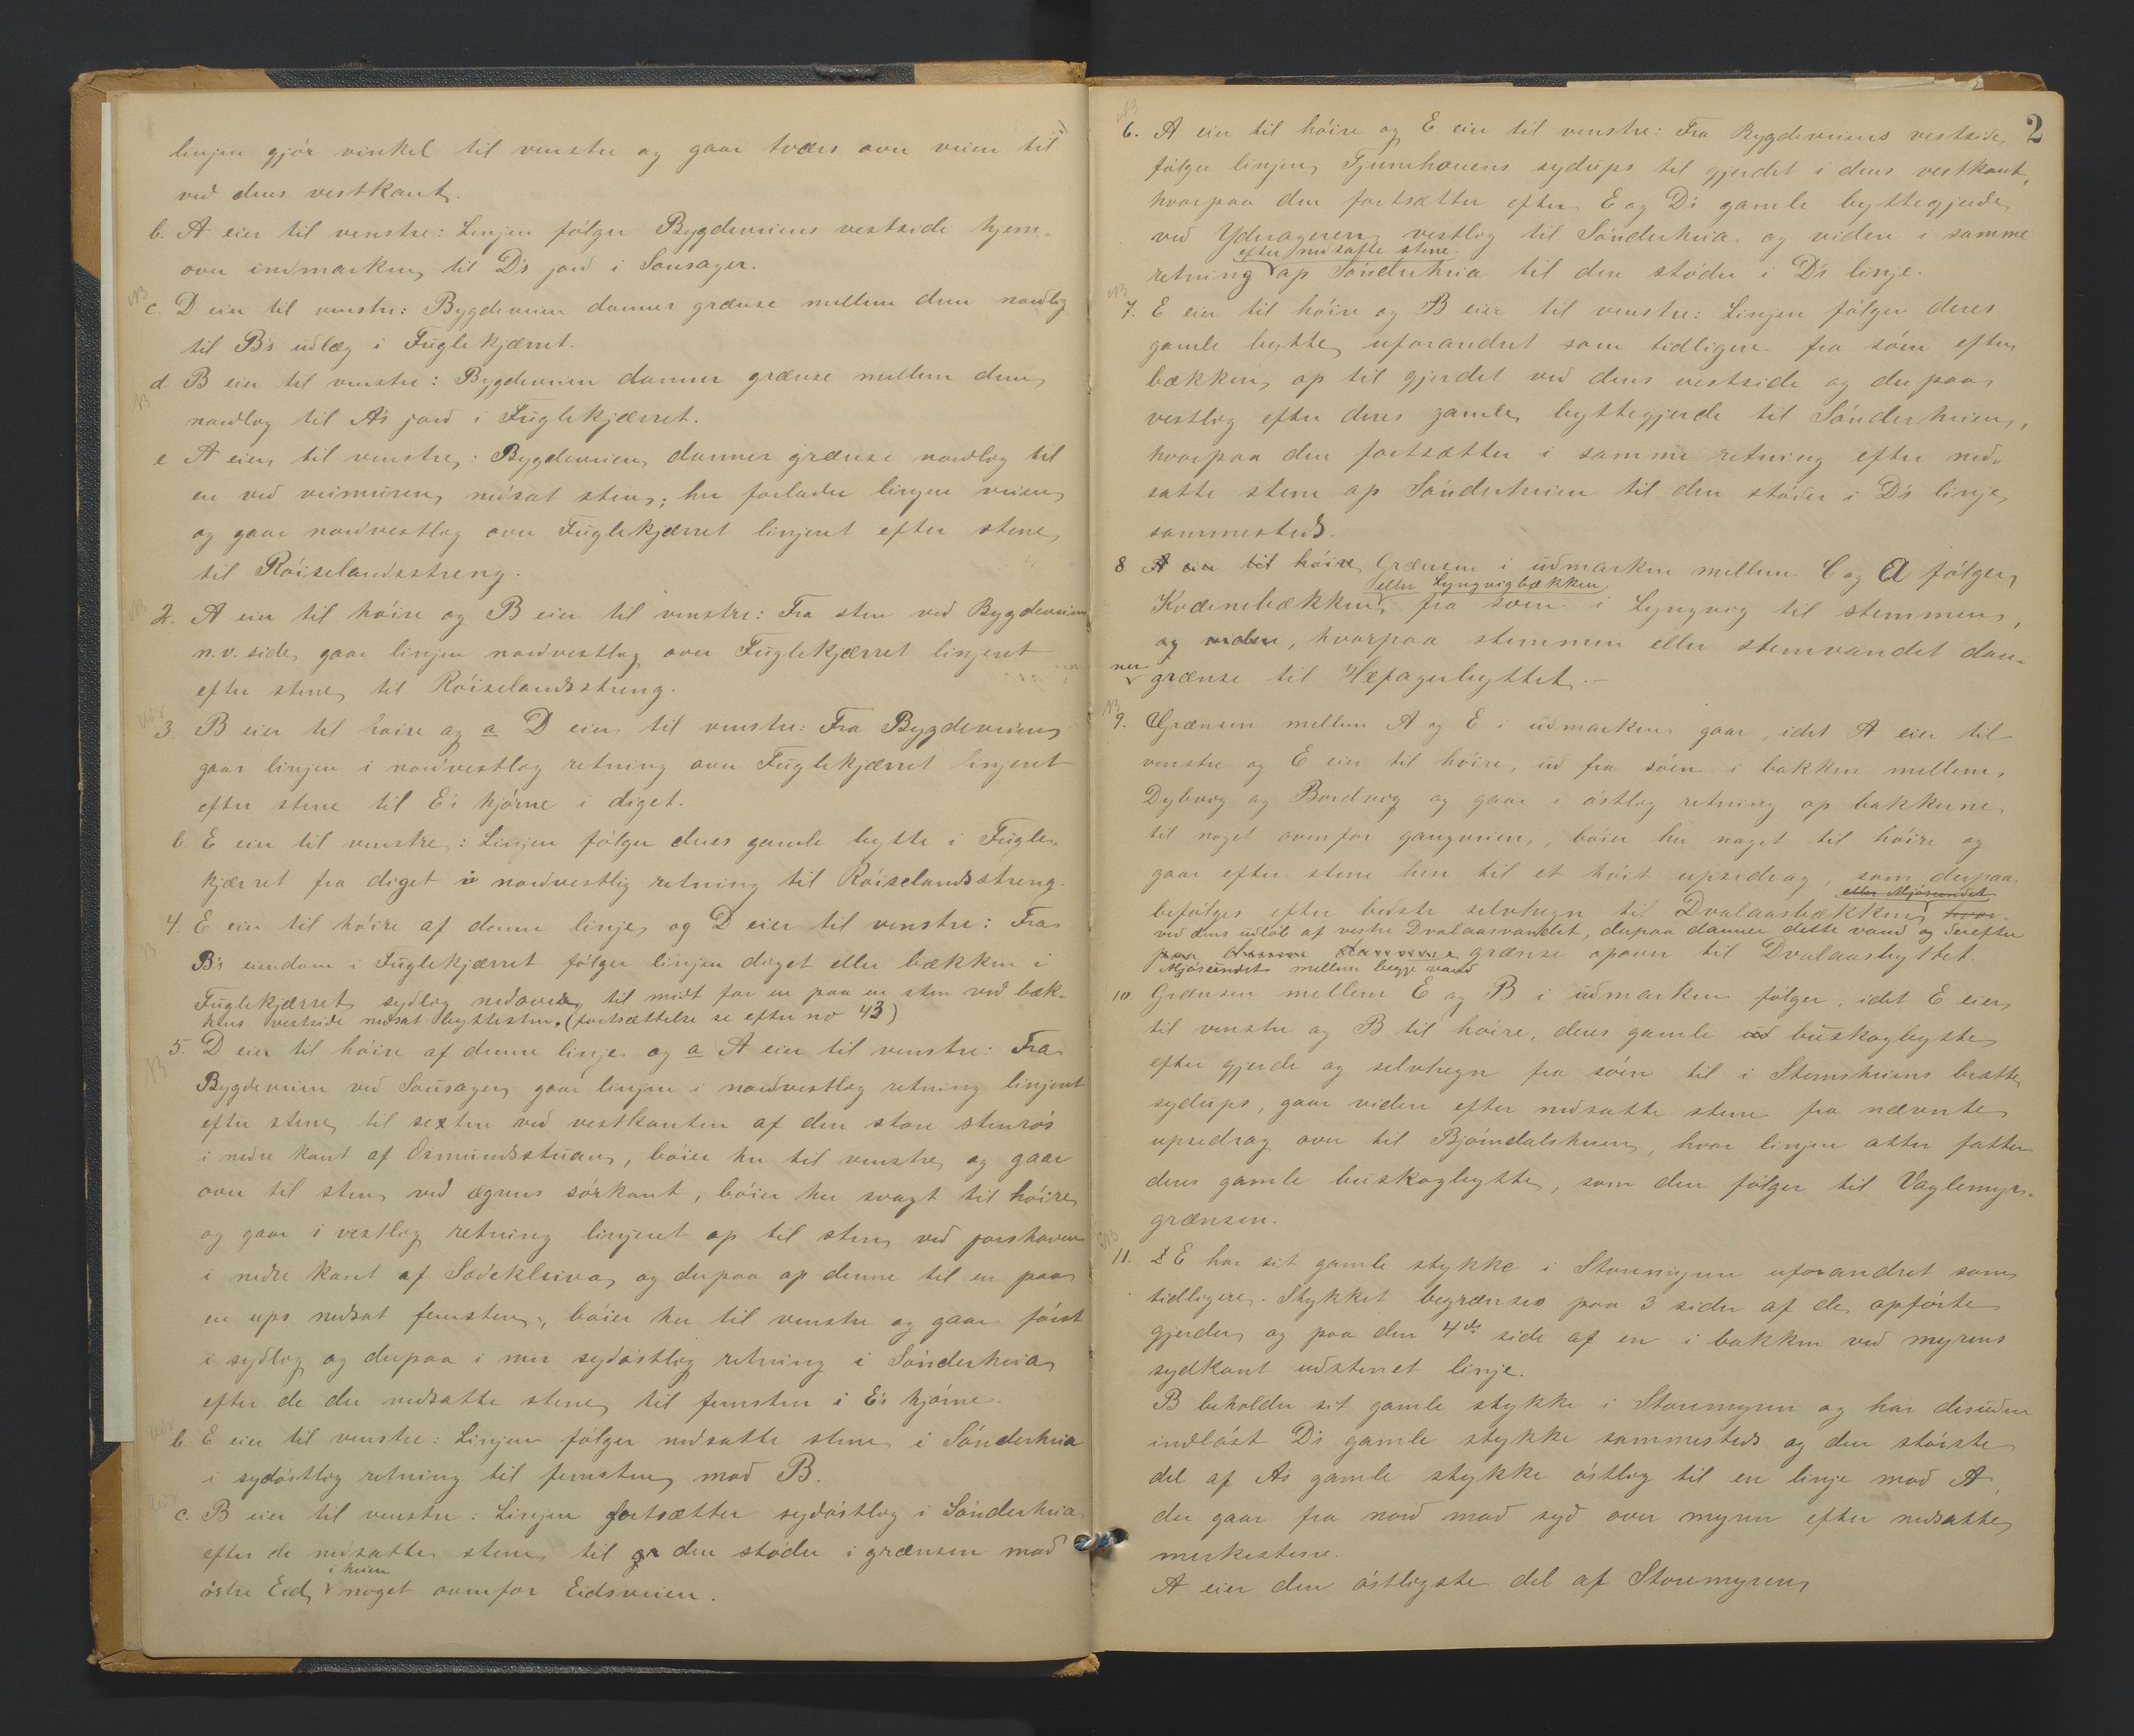 linjen gjör vinkel til venstre og gaar tværs over veien til
ved dens vestkant.
b. A eier til venstre: Linjen følger Bygdeveiens vestside hjem-
over indmarken til D's jord i Sousager.
NB
c. D eier til venstre: Bygdeveien danner grænse mellem dem nordlig
til B's udlæg i Fuglekjærret.
d. B eier til venstre: Bygdeveien danner grænse mellem dem
NB
nordlig til A's jord i Fuglekjærret.
e A eier til venstre: Bygdeveien danner grænse nordlig til
en ved veimuren nedsat sten; her forlader linjen veien
og gaar nordvestlig over Fuglekjærret linjeret efter stene
til Röiselandsstreng.
NB
2. A eier til höire og B eier til venstre: Fra sten ved Bygdeveien
n.v. side gaar linjen nordvestlig over Fuglekjærret linjeret
efter stene til Röiselandsstreng.
3. B eier til höire og a D eier til venstre: Fra Bygdeveien
gaar linjen i nordvestlig retning over Fuglekjærret linjeret
efter stene til E's hjörne i diget.
b. E eier til venstre: Linjen følger deres gamle bytte i Fugle-
kjærret fra diget i nordvestlig retning til Röiselandsstreng.
4. E eier til höire af denne linje og D eier til venstre: Fra
NB
B's eiendom i Fuglekjærret følger linjen diget eller bækken i
Fuglekjærret sydlig nedover til midt for en paa en sten ved bæk-
kens vestside nedsat byttesten. (fortsættelse se efter no 43)
5. D eier til höire af denne linje og a A eier til venstre: Fra
NB
Bygdeveien ved Sousager gaar linjen i nordvestlig retning linjeret
efter stene til sexten ved vestkanten af den store stenrös
i nedre kant af Osmundsstuan, böier her til venstre og gaar
over til sten ved ægrens sörkant, böier her svagt til höire
og gaar i vestlig retning linjeret op til sten ved jorshaven
i nedre kant af Sodekleiva og derpaa op denne til en paa
en ups nedsat femsten, böier her til venstre og gaar först
i sydlig og derpaa i mer sydöstlig retning i Sönderheia
efter de der nedsatte stene til femsten i E's hjörne.
b. E eier til venstre: Linjen følger nedsatte stene i Sönderheia
i sydöstlig retning til femsten mod B.
c. B eier til venstre: Linjen fortsætter sydöstlig i Sönderheia
efter de nedsatte stene til den stöder i grænsen mod
i heien
östre Eid noget ovenfor Eidsveien.
2
NB
6. A eier til höire og E eier til venstre: Fra Bygdeveiens vestside
følger linjen Tjunehavens sydups til gjerdet i dens vestkant,
hvorpaa den fortsætter efter E og D's gamle byttegjerde
ved Yderageren vestlig til Sönderheia og videre i samme
efter nedsatte stene
retning op Sönderheia til den stöder i D's linje.
NB
7. E eier til höire og B eier til venstre: Linjen følger deres
gamle bytte uforandret som tidligere fra söen efter
bækken op til gjerdet ved dens vestside og derpaa
vestlig efter deres gamle byttegjerde til Sönderheien,
hvorpaa den fortsætter i samme retning efter ned-
satte stene op Sönderheien til den stöder i D's linje
sammesteds.
8. A eier til höire Grænsen i udmarken mellem C og A følger
eller Lyngvigbækken
Kværnebækken fra söen i Lyngvig til stemmen,
og videre, hvorpaa stemmen eller stemvandet dan-
ner
grænse til Hæfagerbyttet.
NB
9. Grænsen mellem A og E i udmarken gaar, idet A eier til
venstre og E eier til höire, ud fra söen i bakken mellem
Dybvig og Bordvig og gaar i östlig retning op bakkerne
til noget ovenfor gangveien, böier her noget til höire og
gaar efter stene hen til et höit upsedrag, som derpaa
eller Mjösundet
befölges efter bedste selvhegn til Dvalaasbækken hvor-
ved dens udlöb af vestre Dvalaasvandet, derpaa danner dette vand og derefter
paa denne grænse opover til Dvalaasbyttet.
Mjösundet mellem begge vand
10. Grænsen mellem E og B i udmarken følger, idet E eier
til venstre og B til höire, deres gamle buskogbytte
efter gjerde og selvhegn fra söen til i Stemsheiens bratte
sydups, gaar videre efter nedsatte stene fra nævnte
upsedrag over til Björndalsheien, hvor linjen atter fatter
deres gamle buskogbytte, som den følger til Vaglemyrs-
grænsen.
NB
11. E har sit gamle stykke i Storemyren uforandret som
tidligere. Stykket begrænses paa 3 sider af de opförte
gjerder og paa den 4de side af en i bakken ved myrens
sydkant udstenet linje.
B beholder sit gamle stykke i Storemyren og har desuden
indlöst D's gamle stykke sammesteds og den störste
del af A's gamle stykke östlig til en linje mod A,
der gaar fra nord mod syd over myren efter nedsatte
merkestene.
A eier den östligste del af Storemyren